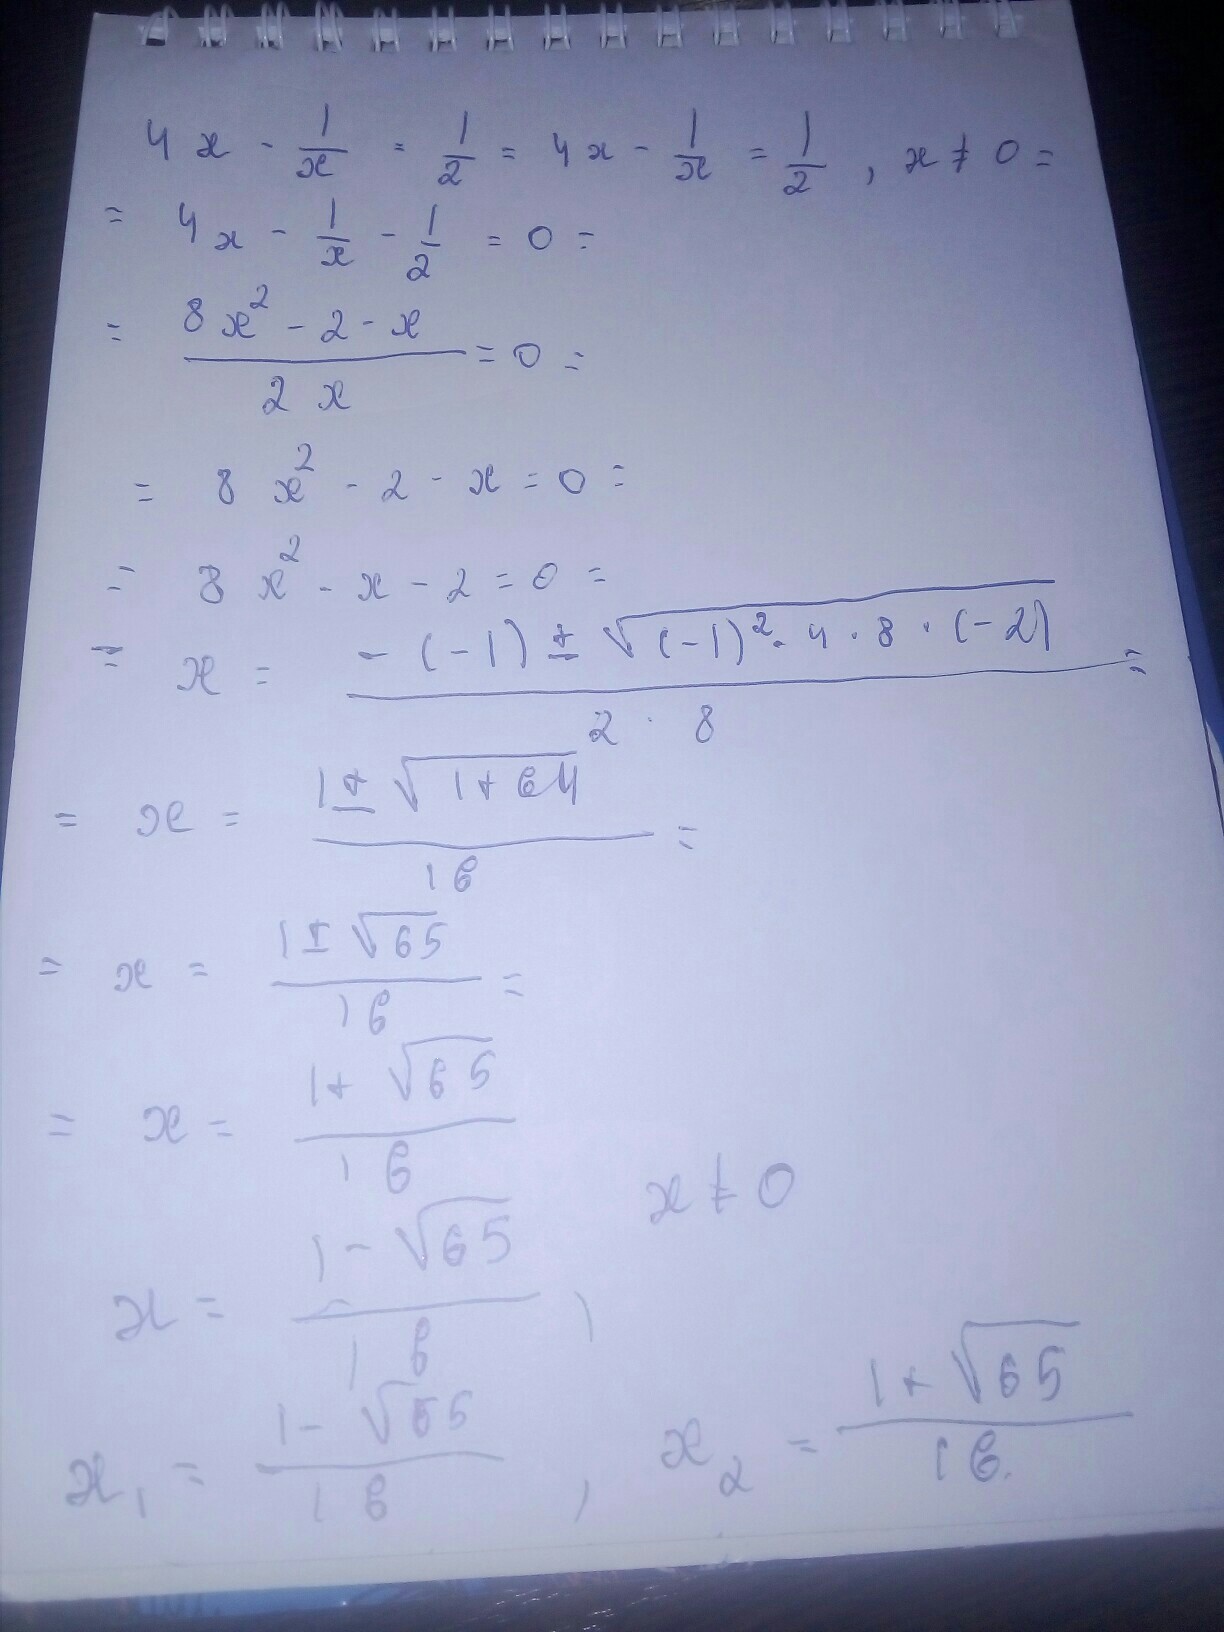 4x - 1/x = 1/2 = 4x - 1/x = 1/2 , x ≠ 0 =
= 4x - 1/x - 1/2 = 0 =
= (8x² - 2 - x)/(2x) = 0 =
= 8x² - 2 - x = 0 =
= 8x² - x - 2 = 0 =
= x = (-(-1) ± √((-1)² - 4 · 8 · (-2)))/(2 · 8) =
= x = (1 ± √(1+64))/16 =
= x = (1 ± √65)/16 =
= x = (1 + √65)/16
x ≠ 0
x = (1 - √65)/16 ,
x₁ = (1 - √65)/16 , x₂ = (1 + √65)/16.